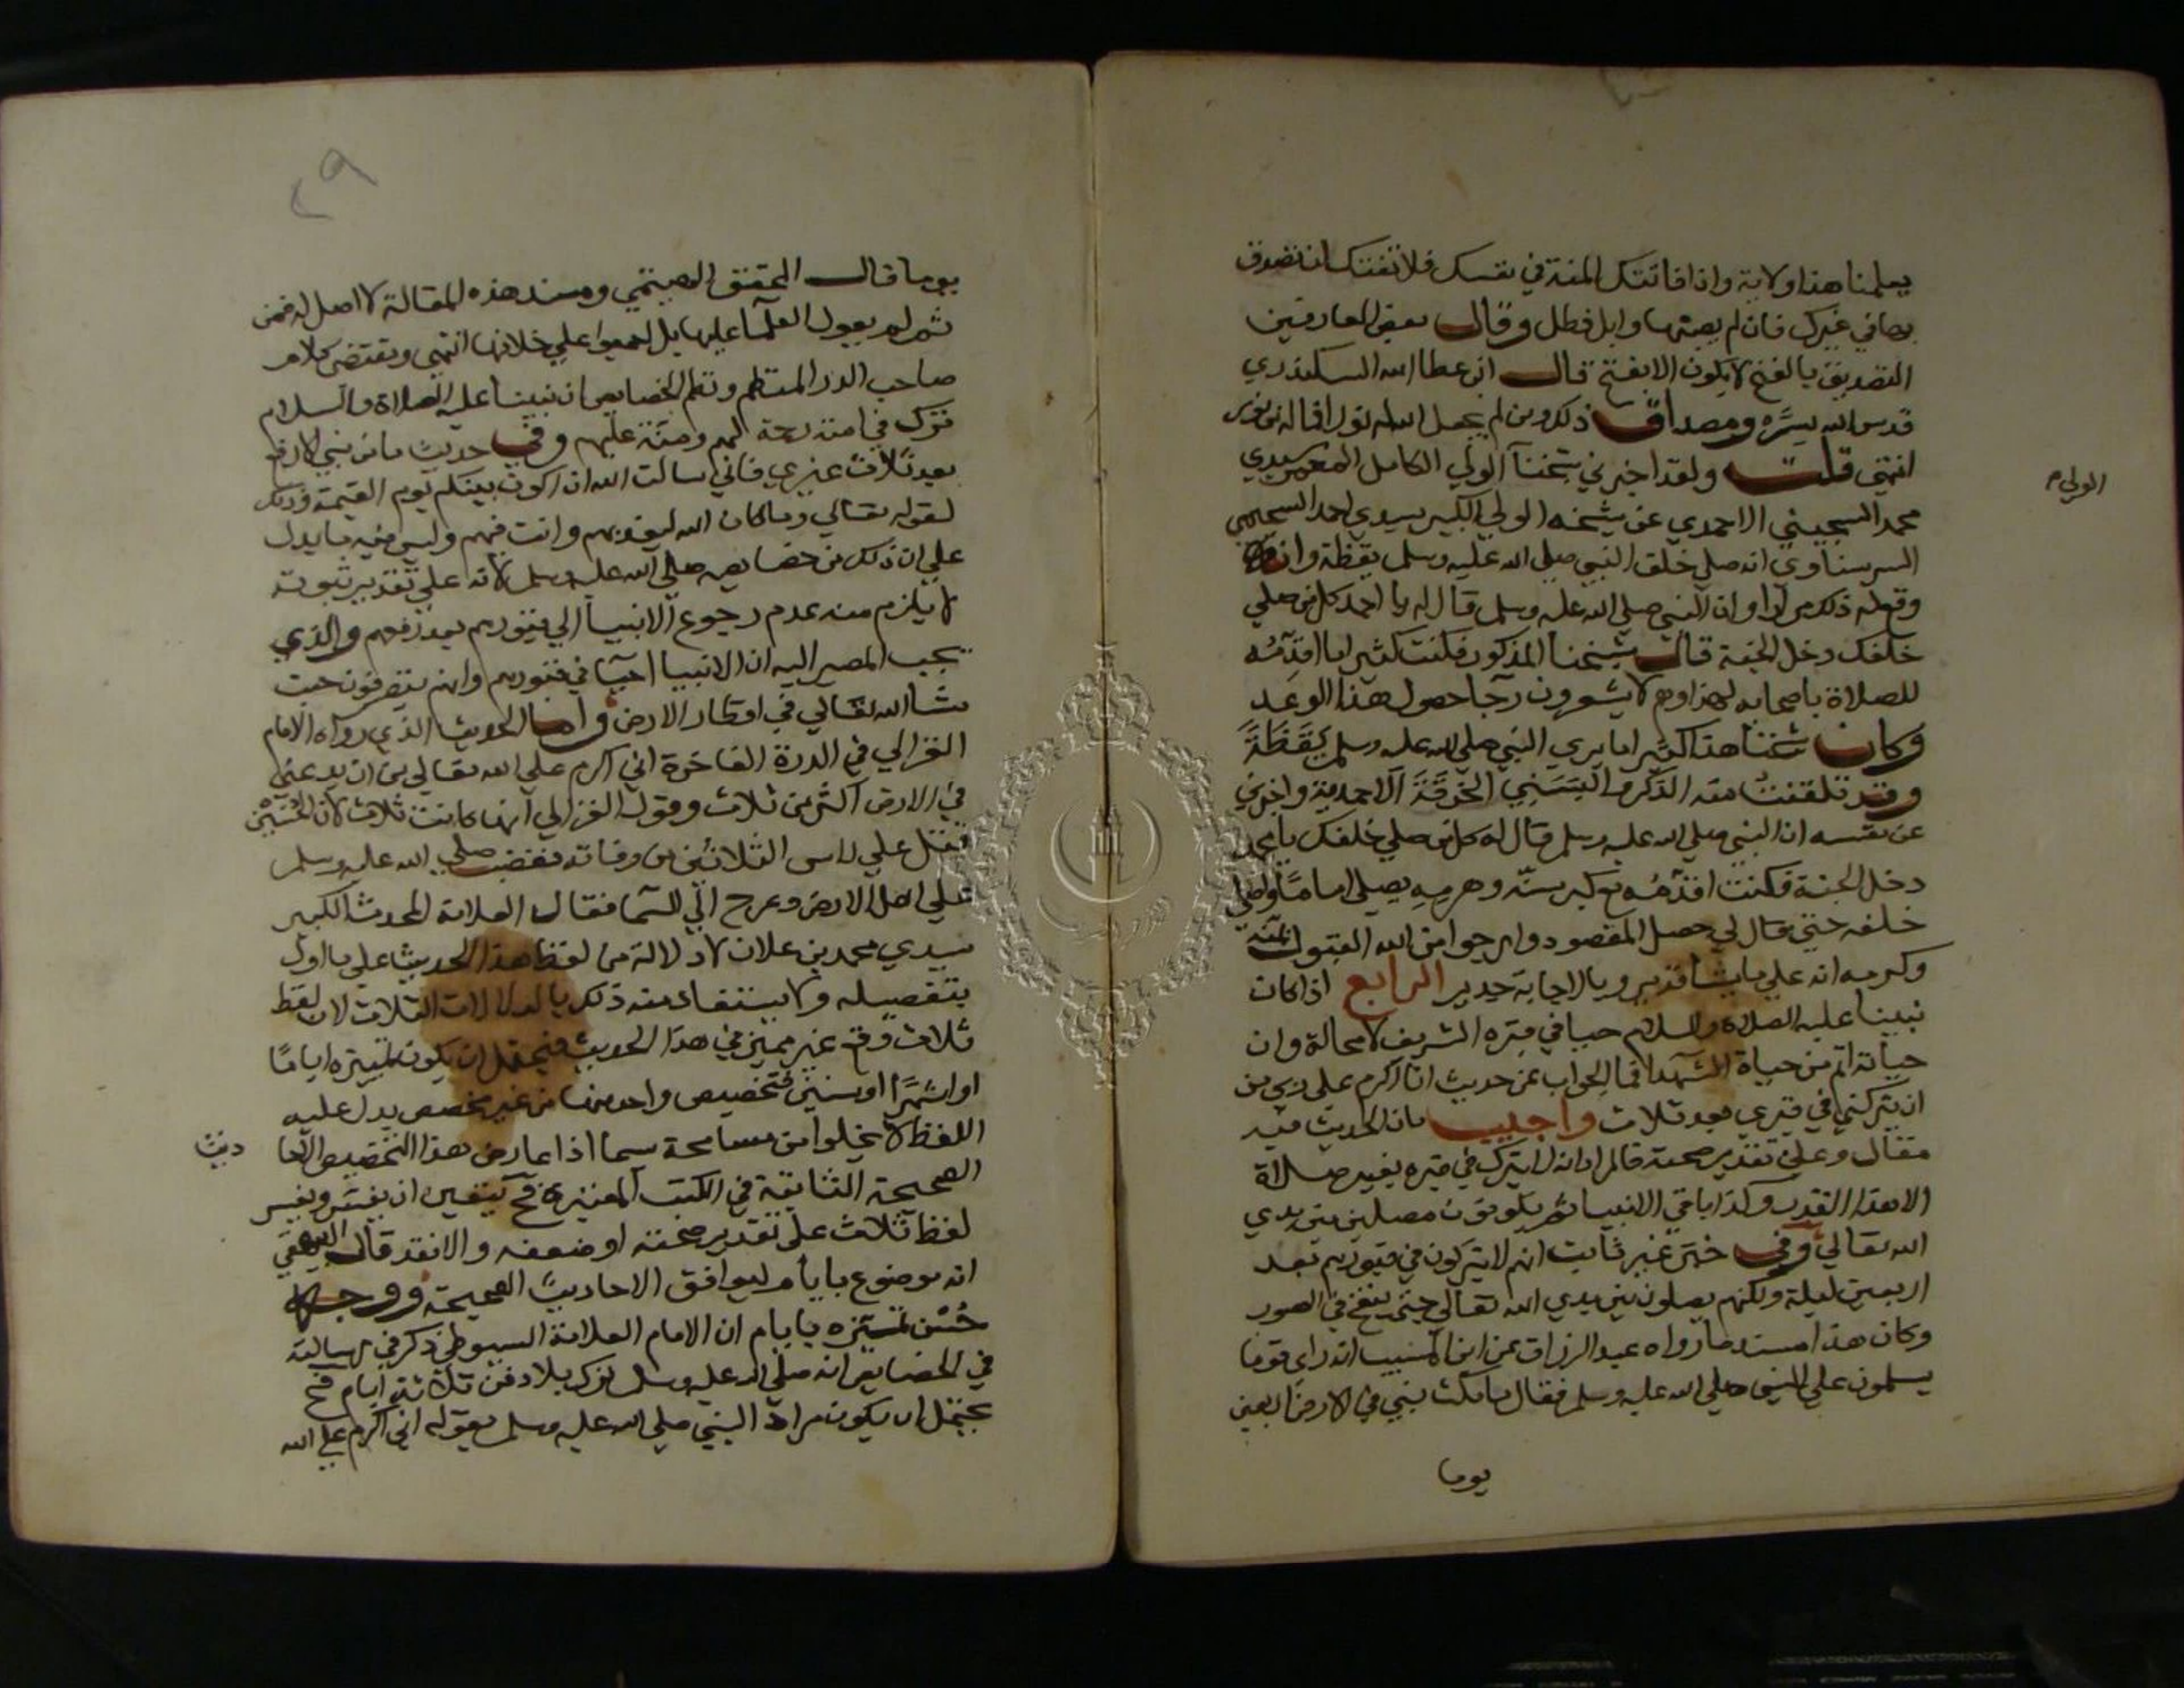 يعلمنا هذا ولاية واذا فاتتك المنة في نفسك فلا تفتك ان تصدق
بها في غيرك فان لم يصبها وابل فطل وقال بعض العارفين
التصديق بالفتح لا يكون الا بفتح قال ابن عطا الله السكندري
قدس الله سره ومصداق ذلك ومن لم يجعل الله له نورا فما له من نور
انتهى قلت ولقد اخبرني شيخنا الولي الكامل المعمر سيدي
الولي م
محمد السجيني الاحمدي عن شيخه الولي الكبير سيدي احمد السحيمي
السرسناوي انه صلي خلف النبي صلي الله عليه وسلم يقظة وانه
وقع له ذلك مرارا وان النبي صلي الله عليه وسلم قال له يا احمد كل من صلي
خلفك دخل الجنة قال شيخنا المذكور فكنت كثيرا ما اقدمه
للصلاة باصحابه لهذا وهم لا يشعرون رجا حصول هذا الوعد
وكان شيخنا هذا كثيرا ما يري النبي صلي الله عليه وسلم يقظة
وقد تلقنت منه الذكر والبسني الخرقة الاحمدية واخبرني
عن نفسه ان النبي صلي الله عليه وسلم قال له كل من صلي خلفك يا محمد
دخل الجنة فكنت اقدمه مع كبر سنه وهرمه يصلي اماما واصلي
خلفه حتي قال لي حصل المقصود وارجوا من الله القبول بمنه
وكرمه انه علي ما يشا قدير وبالاجابة جدير الرابع اذا كان
نبينا عليه الصلاة والسلام حيا في قبره الشريف لا محالة وان
حياته اتم من حياة الشهدا فما الجواب عن حديث انا اكرم علي ربي من
ان يتركني في قبري بعد ثلاث واجيب بان الحديث فيه
مقال وعلي تقدير صحته فالمراد انه لا يترك في قبره بغير صلاة
الا هذا القدر وكذا باقي الانبيا ثم يكونون مصلين بين يدي
الله تعالي وفي خبر غير ثابت انهم لا يتركون في قبورهم بعد
اربعين ليلة ولكنهم يصلون بين يدي الله تعالي حتي ينفخ في الصور
وكان هذا مستند ما رواه عبد الرزاق عن ابن المسيب انه راي قوما
يسلمون علي النبي صلي الله عليه وسلم فقال ما مكث نبي في الارض اربعين
يوما
٢٩
يوما قال المحقق الهيتمي ومسند هذه المقالة لا اصل له فمن
ثم لم يعول العلما عليها بل اجمعوا علي خلافها انتهي ومقتضى كلام
صاحب الدر المنتظم ونظم الخصايص ان نبينا عليه الصلاة والسلام
ترك في امته رحمة لهم ومنة عليهم وفي حديث ما من نبي الا رفع
بعد ثلاث غيري فاني سالت الله ان اكون بينكم يوم القيمة وذلك
لقوله تعالي وما كان الله ليعذبهم وانت فيهم وليس فيه ما يدل
علي ان ذلك من خصايصه صلي الله عليه وسلم لانه علي تقدير ثبوته
لا يلزم منه عدم رجوع الانبيا الي قبورهم بعد رفعهم والذي
يجب المصير اليه ان الانبيا احيا في قبورهم وانهم يتصرفون حيث
شا الله تعالي في اقطار الارض واما الحديث الذي رواه الامام
الغزالي في الدرة الفاخرة اني اكرم علي الله تعالي من ان يدعني
في الارض اكثر من ثلاث وقول الغزالي انها كانت ثلاث لان الحسين
قتل علي راس الثلاثين من وفاته فغضب صلي الله عليه وسلم
علي اهل الارض وعرج الي السما فقال العلامة المحدث الكبير
سيدي محمد بن علان لا دلالة من لفظ هذا الحديث علي ما اول
بتفصيله ولا يستفاد منه ذلك بالدلالات الثلاث لان لفظ
ثلاث وقع غير مميز في هذا الحديث فيحتمل ان يكون تمييزه اياما
او اشهرا او سنين فتخصيص واحد منها من غير مخصص يدل عليه
اللفظ لا يخلوا من مسامحة سيما اذا عارض هذا التخصيص الاحا
ديث
الصحيحة الثابتة في الكتب المعتبرة فح يتعين ان يفسر
لفظ ثلاث علي تقدير صحته او ضعفه والا فقد قال البيهقي
انه موضوع بايام ليوافق الاحاديث الصحيحة ووجه
حسن تمييزه بايام ان الامام العلامة السيوطي ذكر في رسالته
في الخصايص انه صلي الله عليه وسلم ترك بلا دفن ثلاثة ايام فح
يحتمل ان يكون مراد النبي صلي الله عليه وسلم بقوله اني اكرم علي الله